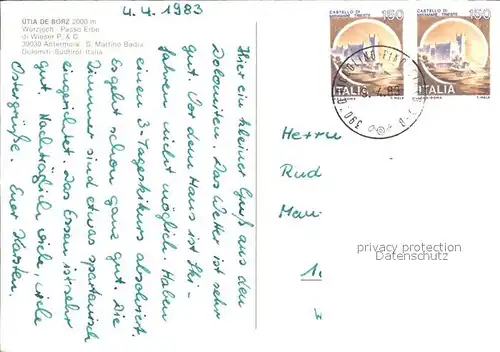 4.4.1983
ÜTIA DE BÖRZ 2000 m
Würzjoch - Passo Erbe
di Wieser P. & C.
39030 Antermoia - S. Martino Badia
Dolomiti - Südtirol - Italia
Hier ein kleiner Gruß aus den
Dolomiten. Das Wetter ist sehr
gut. Vor dem Haus ist Ski-
fahren nicht möglich. Haben
einen 3-Tageskikurs absolviert.
Es geht schon ganz gut. Die
Zimmer sind etwas spartanisch
eingerichtet. Das Essen ist sehr
gut. Nachträglich viele, viele
Ostergrüße. Euer Karsten.
CASTELLO DI
MIRAMARE TRIESTE
150
ITALIA
CASTELLO DI
MIRAMARE TRIESTE
150
ITALIA
390
Herrn
Rud
Mau
1
privacy protection
Datenschutz